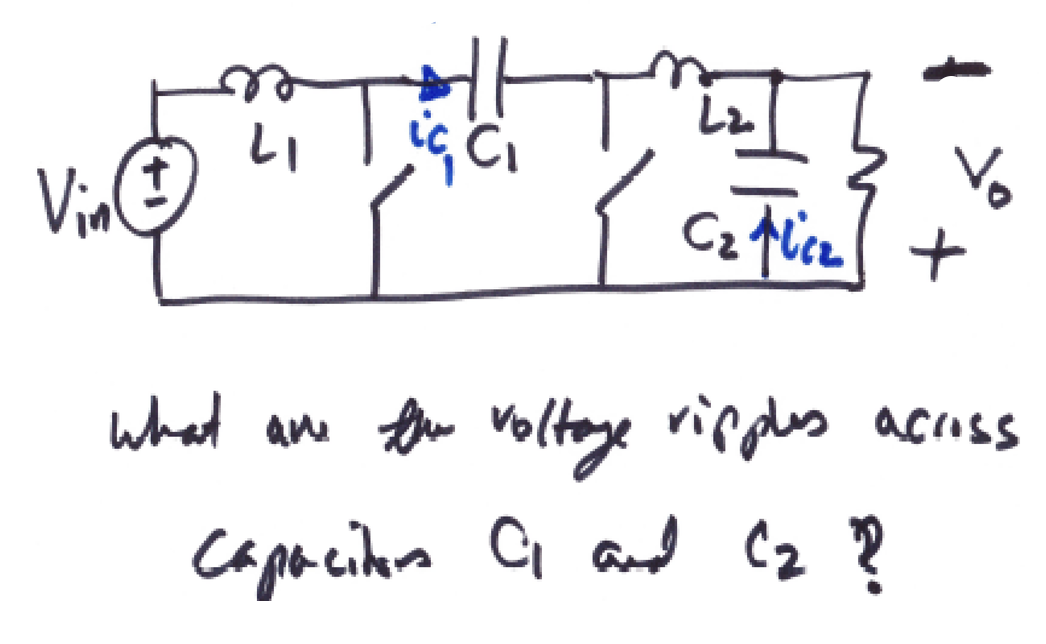 L1
ic1 C1
L2
Vin + -
C2 ic2
- Vo +
What are the voltage ripples across
Capacitors C1 and C2 ?